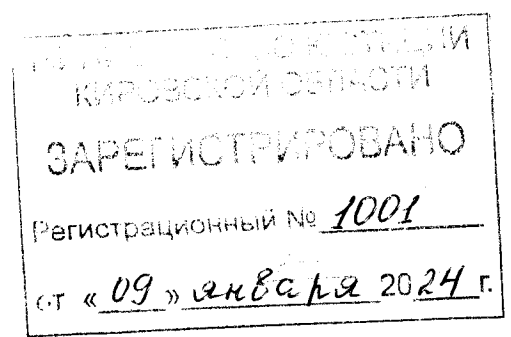 ЮСТИЦИИ
КИРОВСКОЙ ОБЛАСТИ
ЗАРЕГИСТРИРОВАНО
Регистрационный № 1001
от «09» января 2024 г.